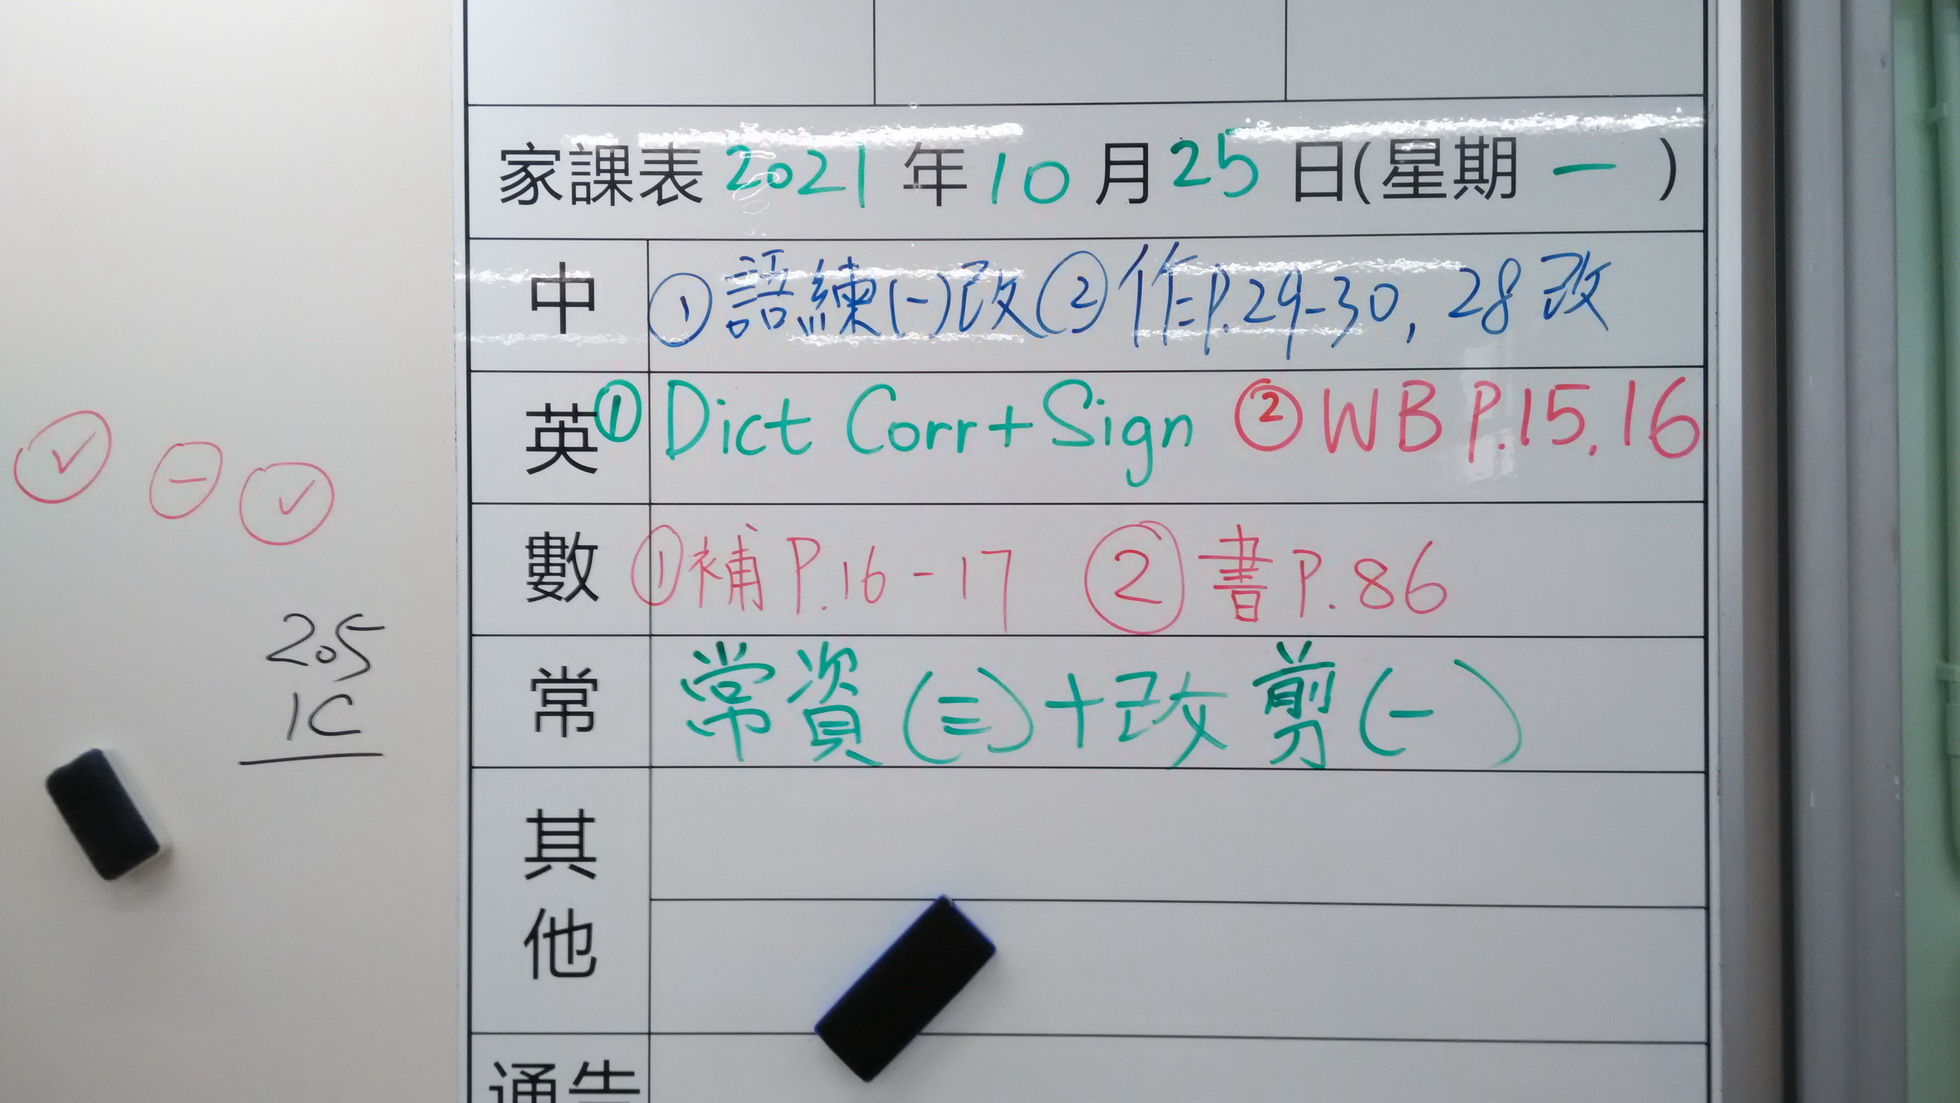 家課表 2021 年 10 月 25 日(星期 一 )
中 ① 語練(一)改 ② 作P.29-30, 28改
英 ① Dict Corr + Sign ② WB P.15,16
數 ① 補 P.16-17 ② 書 P.86
常 常資(三)+改剪(一)
其他
通告